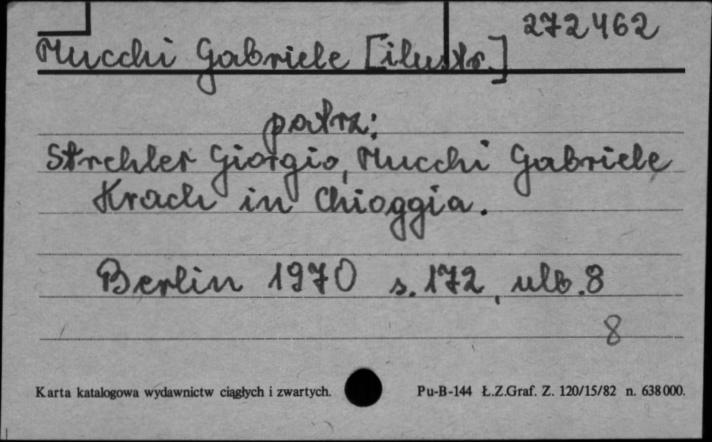 272462
Mucchi Gabriele [ilustr.]
patrz:
Strehler Giorgio, Mucchi Gabriele
Krach in Chioggia.
Berlin 1970 s. 172, ulb. 8
8
Karta katalogowa wydawnictw ciągłych i zwartych. Pu-B-144 Ł.Z.Graf. Z. 120/15/82 n. 638000.